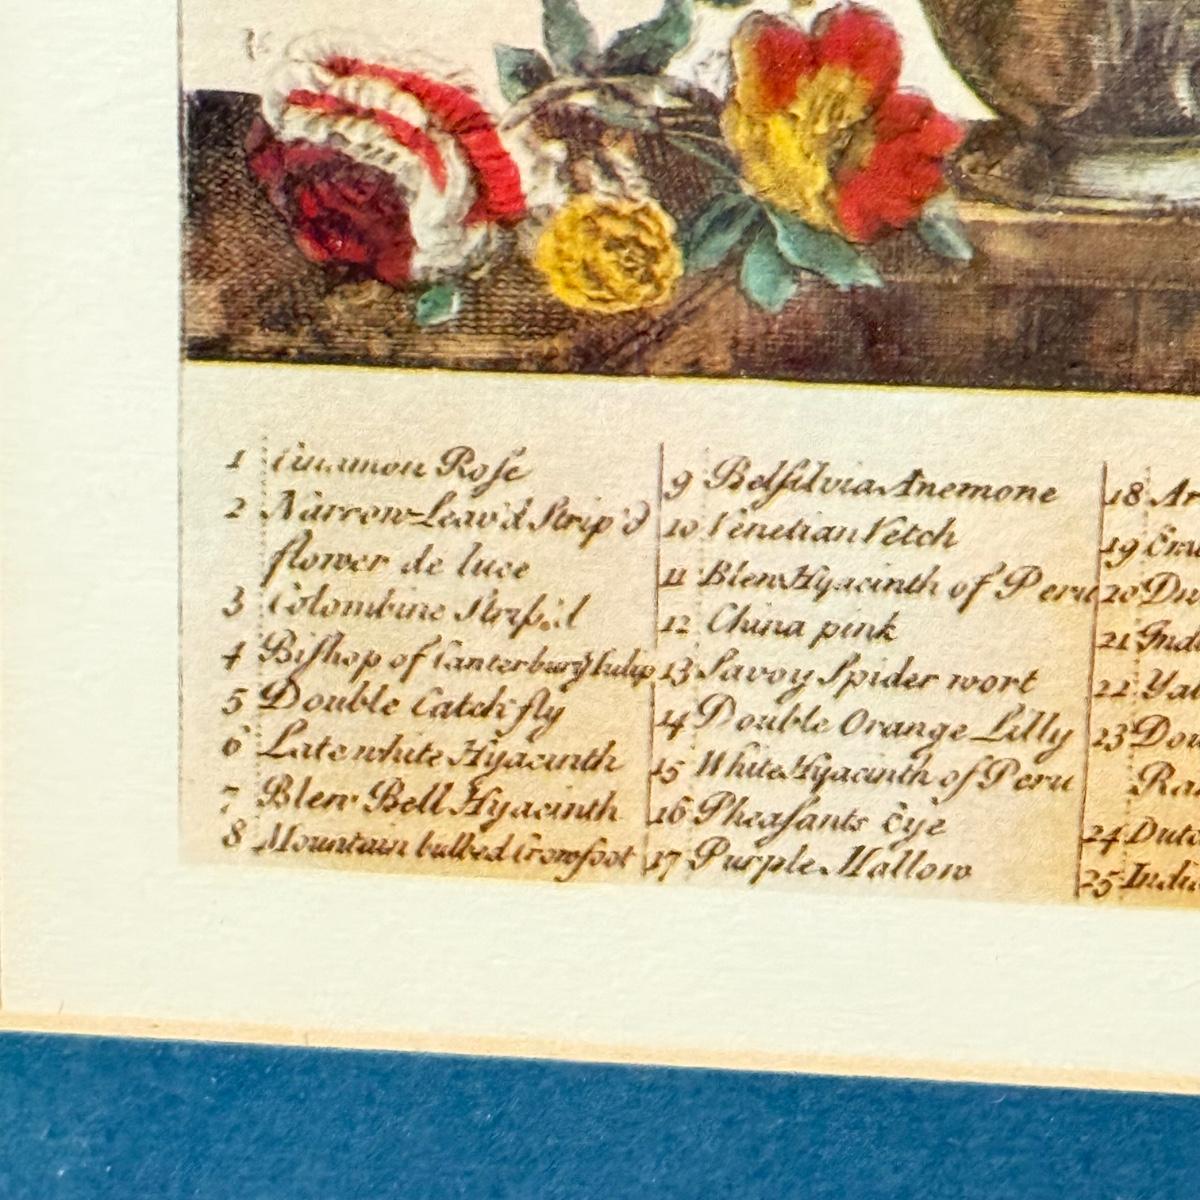 1 Cinamon Rose
2 Narrow-Leav'd Strip'd
flower de luce
3 Colombine Strip'd
4 Bishop of Canterbury tulip
5 Double Catch fly
6 Late white Hyacinth
7 Blew Bell Hyacinth
8 Mountain bulbed Crowfoot
9 Belsilvia Anemone
10 Venetian Vetch
11 Blew Hyacinth of Peru
12 China pink
13 Savoy Spider wort
14 Double Orange Lilly
15 White Hyacinth of Peru
16 Pheasants Eye
17 Purple Mallow
18
19
20
21
22
23
24
25